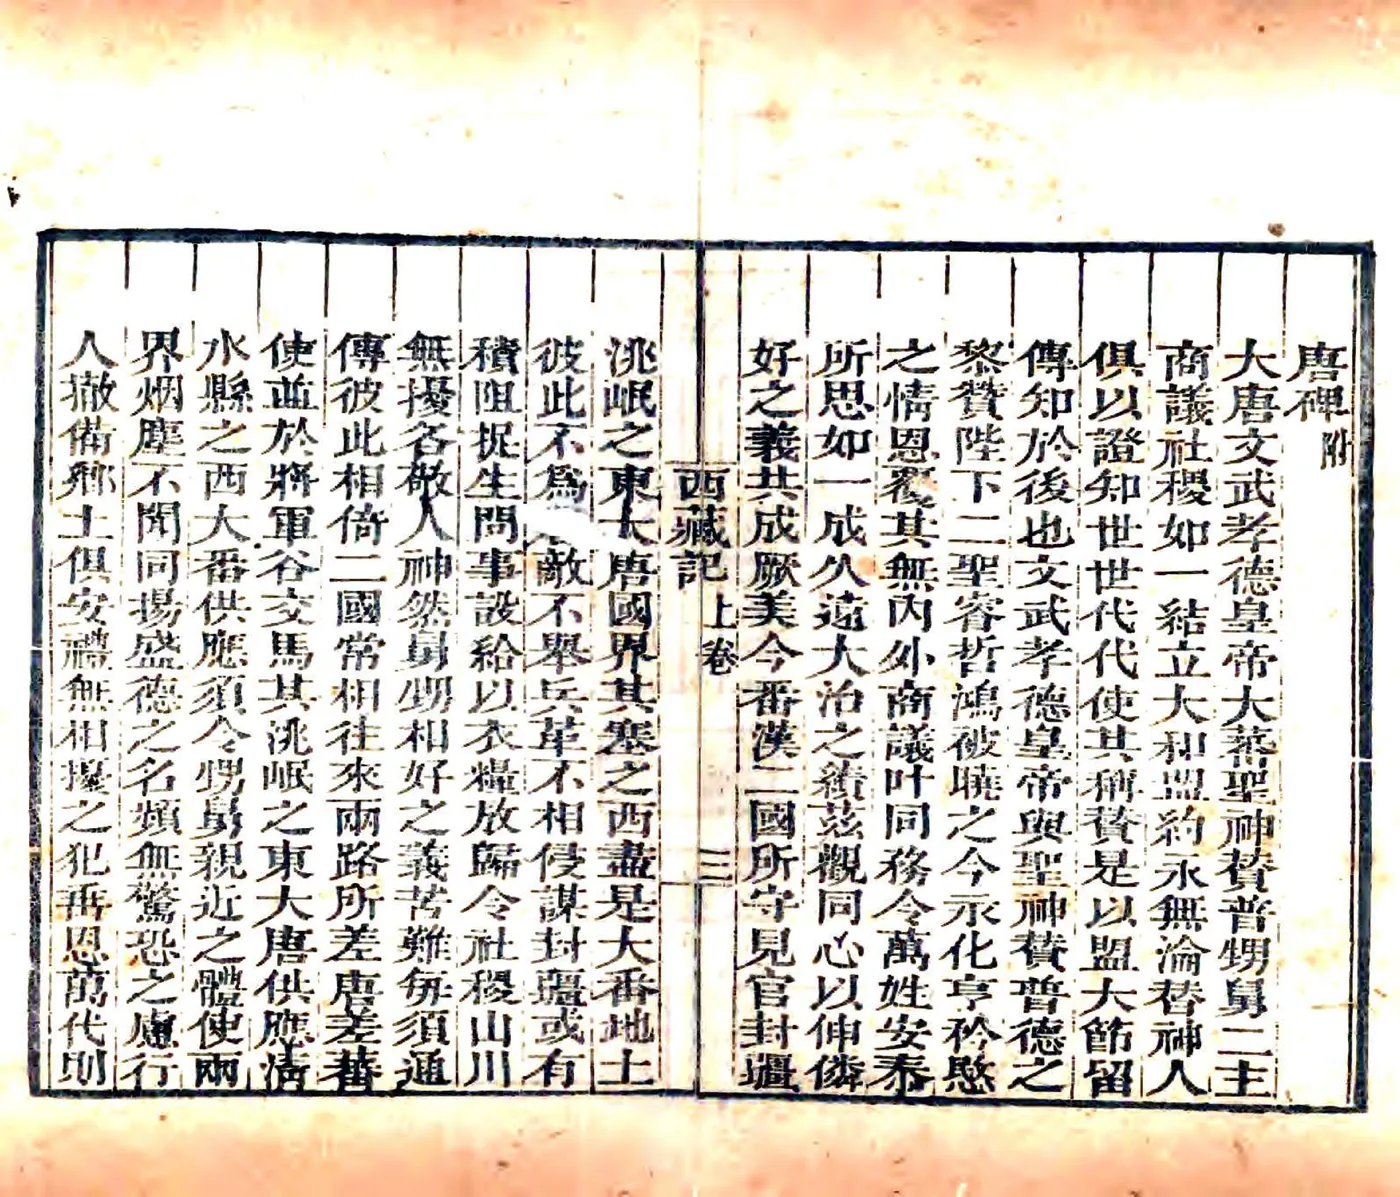 唐碑附
大唐文武孝德皇帝大蕃聖神贊普甥舅二主
商議社稷如一結立大和盟約永無淪替神人
俱以證知世世代代使其稱贊是以盟大節留
傳知於後也文武孝德皇帝與聖神贊普德之
黎贊陛下二聖睿哲鴻被曉之今永化亨矜愍
之情恩覆其無內外商議叶同務令萬姓安泰
所思如一成久遠大治之績茲觀同心以伸僯
好之義共成厥美今番漢二國所守見官封疆
西藏記 上卷 三
洮岷之東大唐國界其塞之西盡是大番地土
彼此不為敵不舉兵革不相侵謀封疆或有
積阻捉生問事設給以衣糧放歸令社稷山川
無擾各敬人神然舅甥相好之義苦難每須通
傳彼此相倚二國常相往來兩路所差唐差蕃
使並於將軍谷交馬其洮岷之東大唐供應清
水縣之西大番供應須令甥舅親近之體使兩
界烟塵不聞同揚盛德之名頻無驚恐之慮行
人撤備鄉土俱安禮無相擾之犯垂恩萬代則